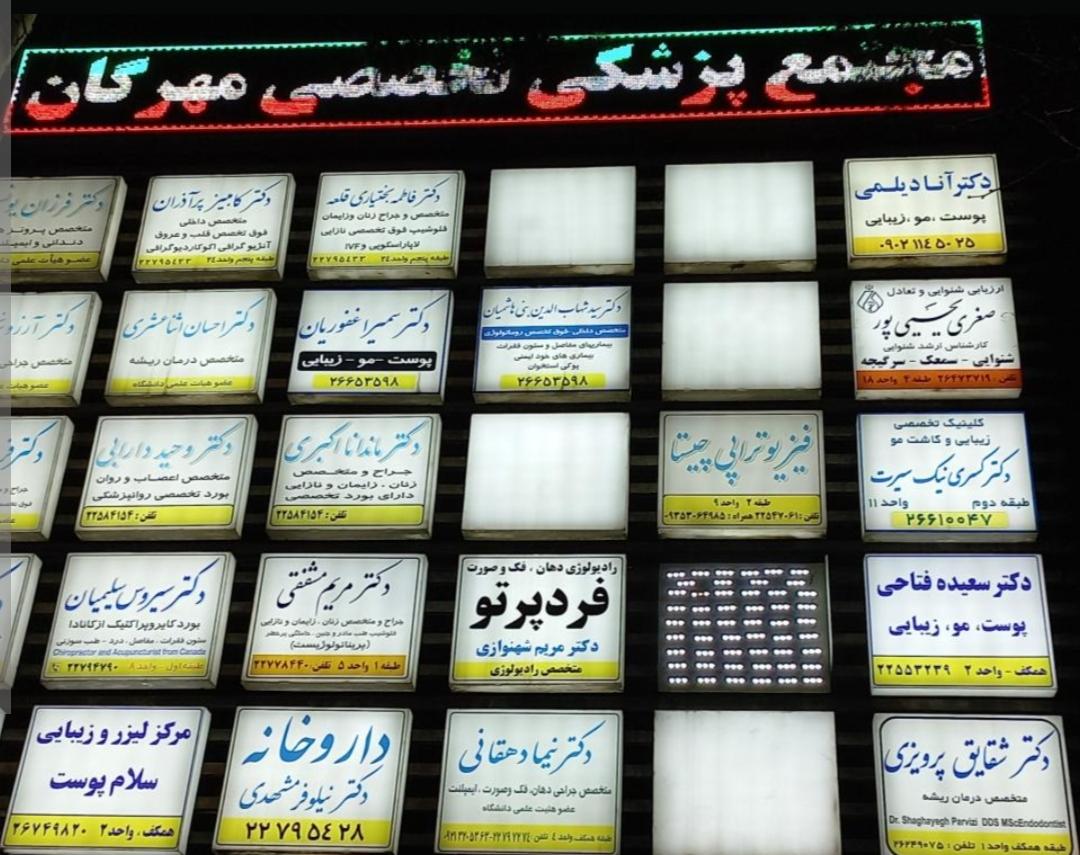 مجتمع پزشکی تخصصی مهرگان
دکتر آنا دیلمی
پوست ،مو ،زیبایی
۰۹۰۲ ۱۱۴ ۵۰ ۲۵
دکتر فاطمه بختیاری قلعه
متخصص و جراح زنان وزایمان
فلوشیپ فوق تخصصی نازایی
لاپاراسکوپی و IVF
طبقه پنجم واحد۲۴ ۲۲۷۹۵۴۳۳
دکتر کامبیز پرآذران
متخصص داخلی
فوق تخصص قلب و عروق
آنژیوگرافی اکوکاردیوگرافی
طبقه پنجم واحد۲۴ ۲۲۷۹۵۴۳۳
دکتر فرزان
متخصص
دندانی و
عضو هیأت علمی
ارزیابی شنوایی و تعادل
صغری یحیی پور
کارشناس ارشد شنوایی
شنوایی - سمعک - سرگیجه
تلفن : ۲۶۴۷۳۷۱۹ طبقه ۴ واحد ۱۸
دکتر سید شهاب الدین بنی هاشمیان
متخصص داخلی-فوق تخصص روماتولوژی
بیماریهای مفاصل و ستون فقرات
بیماری های خود ایمنی
پوکی استخوان
۲۶۶۵۳۵۹۸
دکتر سمیرا غفوریان
پوست -مو - زیبایی
۲۶۶۵۳۵۹۸
دکتر احسان اثناعشری
متخصص درمان ریشه
عضو هیات علمی دانشگاه
دکتر
متخصص
عضو هیات
کلینیک تخصصی
زیبایی و کاشت مو
دکتر کسری نیک سیرت
طبقه دوم واحد ۱۱
۲۶۶۱۰۰۴۷
فیزیوتراپی چیستا
طبقه ۲ واحد ۹
تلفن : ۲۲۵۴۷۰۶۱ همراه : ۰۹۳۵۳۰۶۴۹۸۵
دکتر ماندانا اکبری
جراح و متخصص
زنان . زایمان و نازایی
دارای بورد تخصصی
تلفن : ۲۲۵۸۴۱۵۴
دکتر وحید دارابی
متخصص اعصاب و روان
بورد تخصصی روانپزشکی
تلفن : ۲۲۵۸۴۱۵۴
دکتر
دکتر سعیده فتاحی
پوست، مو، زیبایی
همکف - واحد ۲ ۲۲۵۵۳۲۳۹
رادیولوژی دهان ، فک و صورت
فردپرتو
دکتر مریم شهنوازی
متخصص رادیولوژی
دکتر مریم مشفقی
جراح و متخصص زنان ، زایمان و نازایی
فلوشیپ طب مادر و جنین ، حاملگی پرخطر
(پریناتولوژیست)
طبقه ۱ واحد ۵ تلفن: ۲۲۷۷۸۴۴۰
دکتر سیروس سلیمیان
بورد کایروپراکتیک از کانادا
ستون فقرات . مفاصل . درد - طب سوزنی
Chiropractor and Acupuncturist from Canada
طبقه اول - واحد ۸ ۲۲۷۹۴۷۹۰
دکتر شقایق پرویزی
متخصص درمان ریشه
Dr. Shaghayegh Parvizi DDS MScEndodontist
طبقه همکف واحد ۱ تلفن : ۲۶۲۴۹۰۷۵
دکتر نیما دهقانی
متخصص جراحی دهان، فک وصورت ، ایمپلنت
عضو هیئت علمی دانشگاه
طبقه همکف واحد ٤ تلفن
داروخانه
دکتر نیلوفر مشهدی
۲۲ ۷۹ ۵۴ ۲۸
مرکز لیزر و زیبایی
سلام پوست
همکف، واحد۲ ۲۶۷۴۹۸۲۰